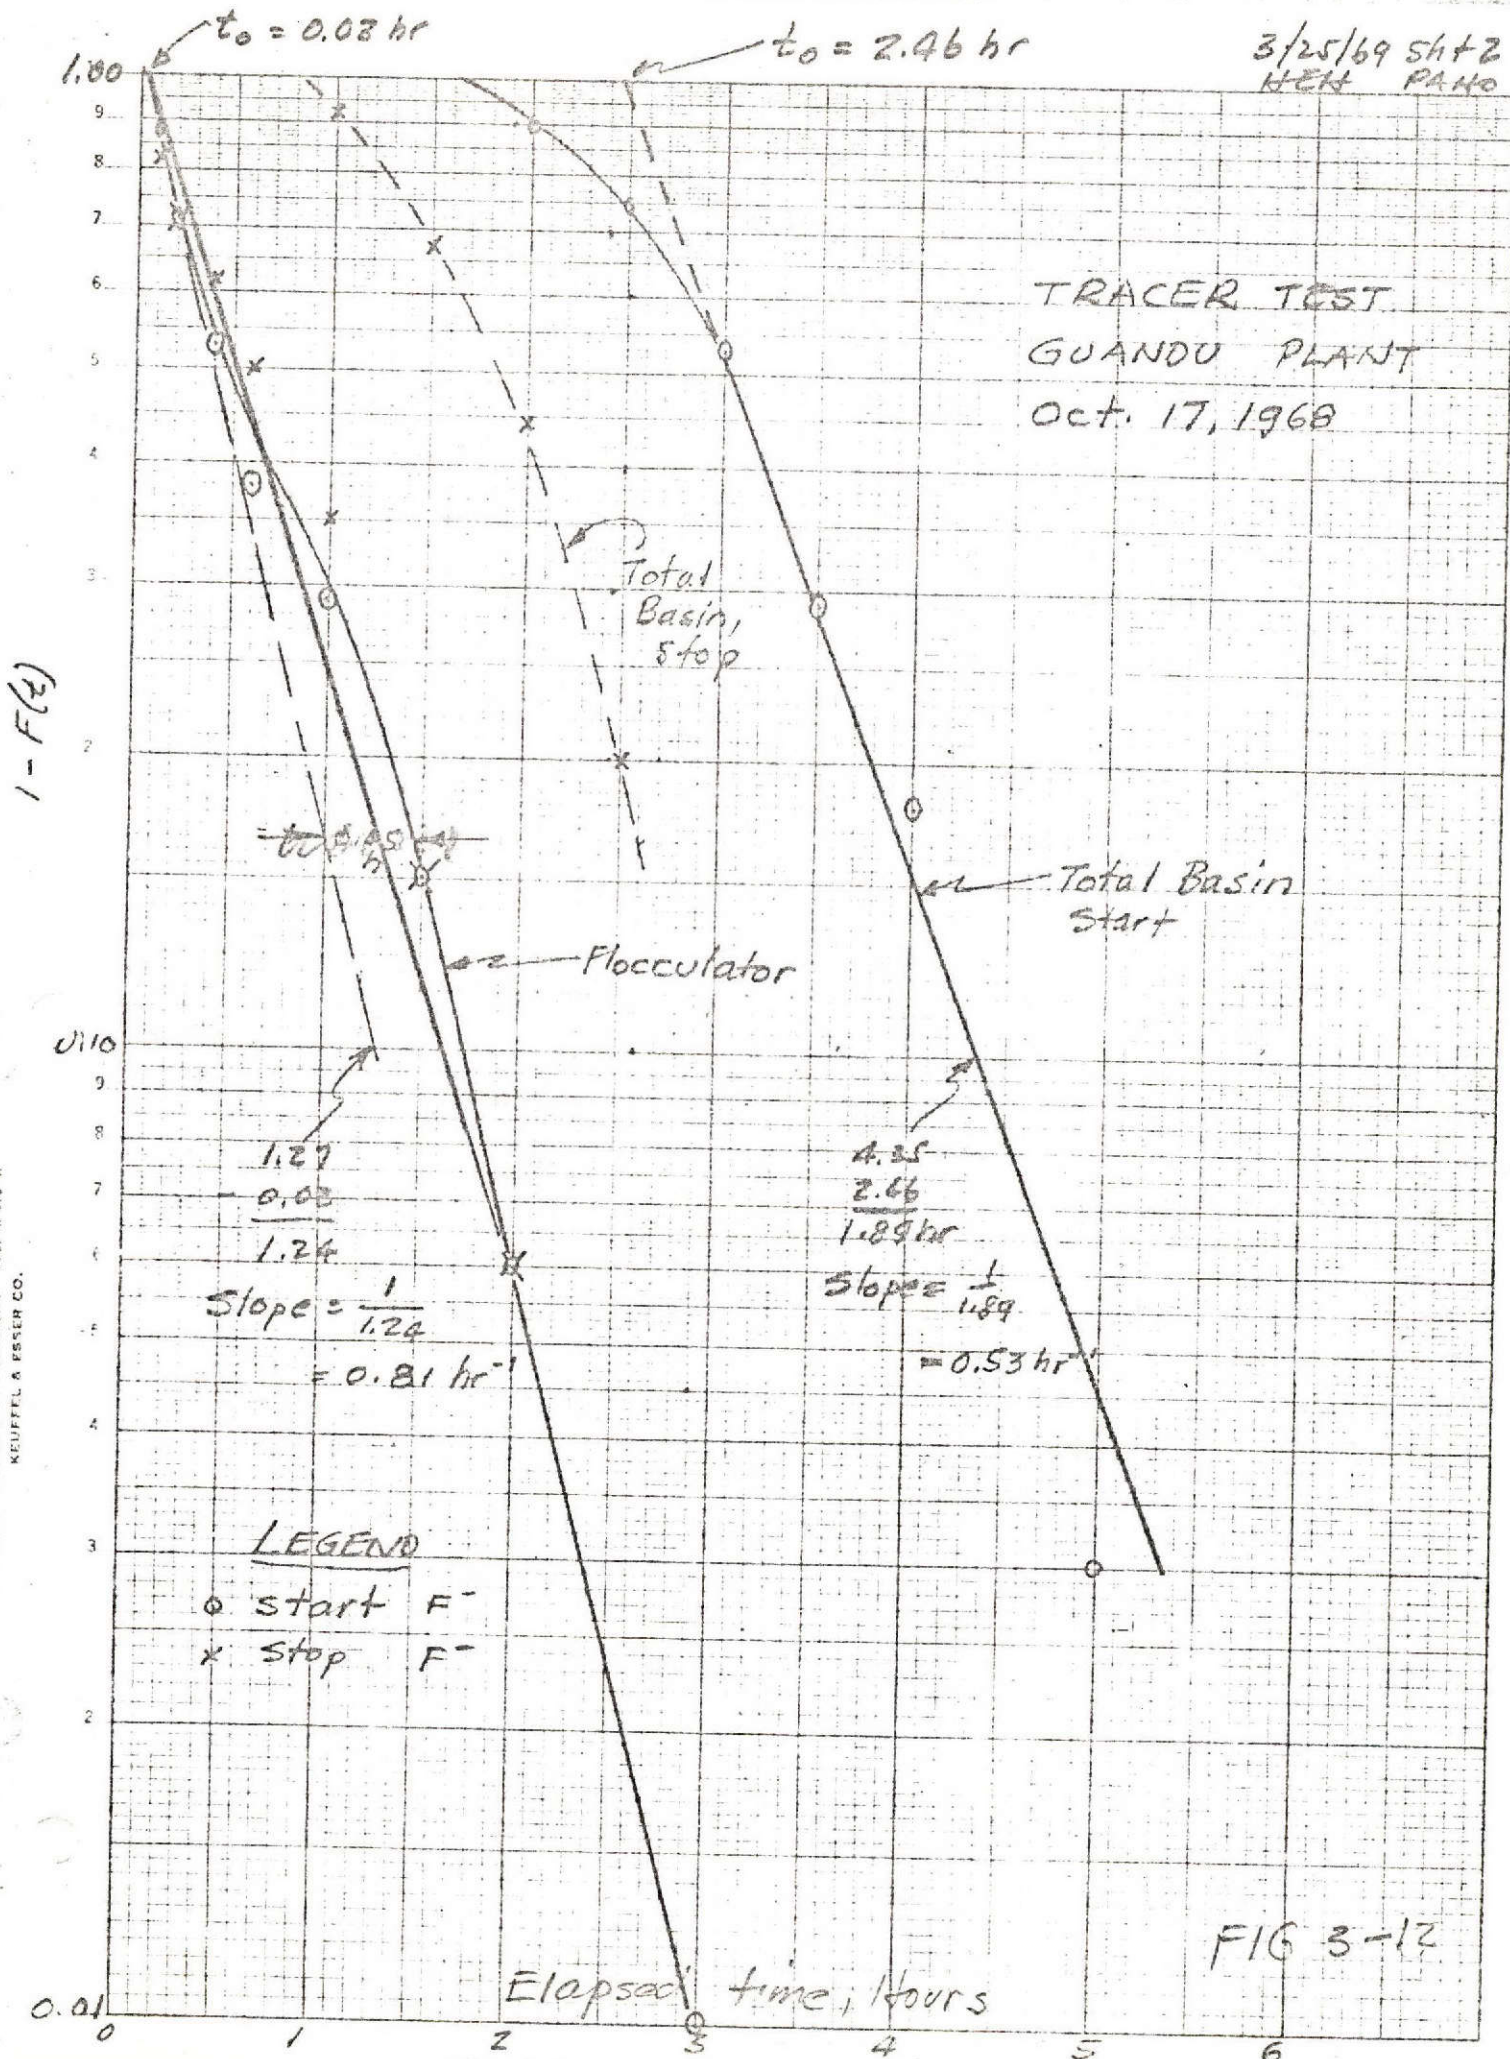 t₀ = 0.03 hr
t₀ = 2.46 hr
3/25/69 Sht 2
HEH PAHO
1.00
9
8
7
6
5
4
3
2
0.10
9
8
7
6
5
4
3
2
0.01
1 - F(t)
TRACER TEST
GUANDU PLANT
Oct. 17, 1968
Total
Basin,
Stop
Total Basin
Start
Flocculator
1.27
- 0.03
1.24
Slope = 1/1.24
= 0.81 hr⁻¹
4.35
2.46
1.89 hr
Slope = 1/1.89
= 0.53 hr⁻¹
LEGEND
⊙ start F⁻
x stop F⁻
KEUFFEL & ESSER CO.
FIG 3-12
Elapsed time, Hours
0 1 2 3 4 5 6